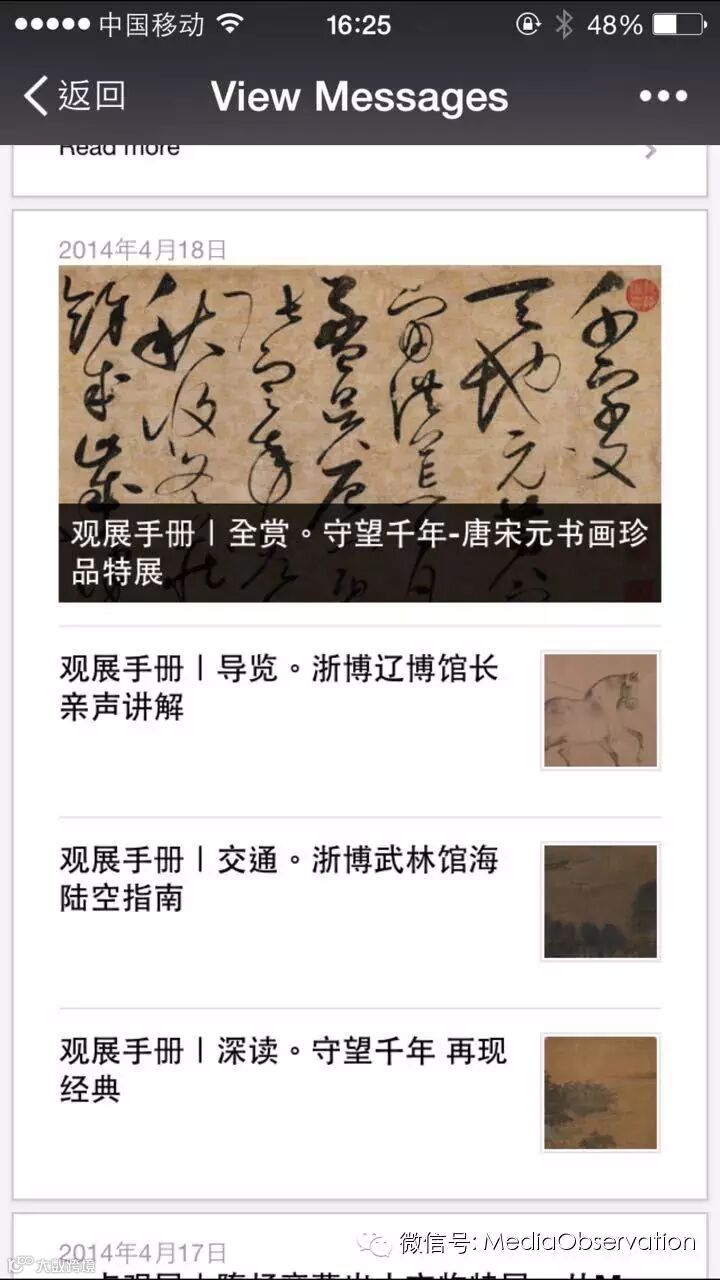 中国移动 16:25 48%
返回 View Messages
Read more
2014年4月18日
千字文
天地元黄
宇宙洪荒日月
盈昃辰宿
列张寒来
秋收冬藏
观展手册丨全赏。守望千年-唐宋元书画珍
品特展
观展手册丨导览。浙博辽博馆长
亲声讲解
观展手册丨交通。浙博武林馆海
陆空指南
观展手册丨深读。守望千年 再现
经典
2014年4月17日
微信号: MediaObservation
大数跨境